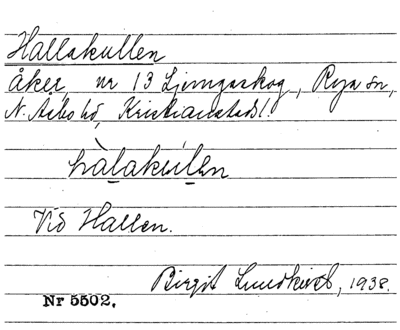 Hallakullen
Åker, nr 13 Ljungaskog, Röja sn,
N. Åsbo hd, Kristianstads l.
hàlakúlen
Vid Hallen.
Birgit Lundkvist, 1938.
Nr 5502.